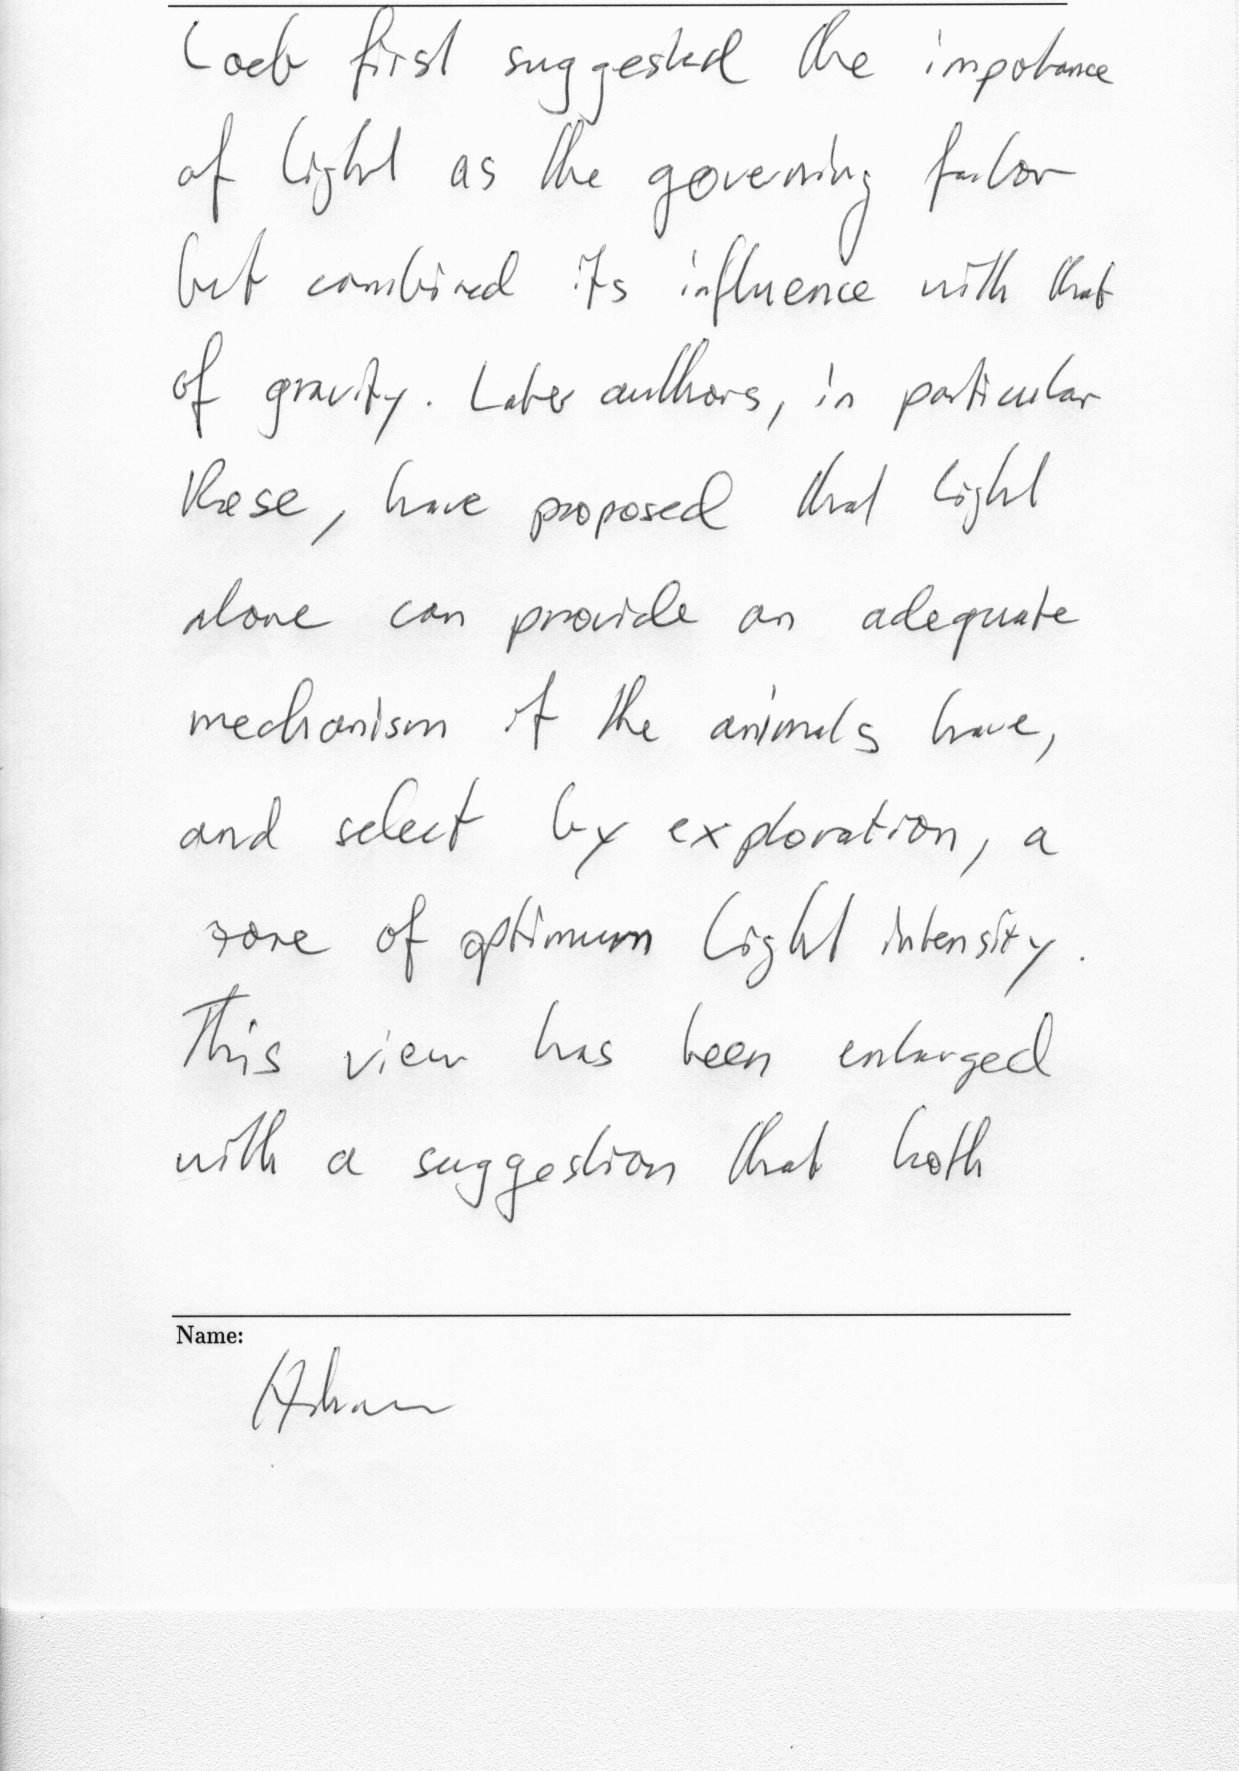 Loeb first suggested the impotance
of light as the governing factor
but combined its influence with that
of gravity. Later authors, in particular
these, have proposed that light
alone can provide an adequate
mechanism if the animals have,
and select by exploration, a
zone of optimum light intensity.
This view has been enlarged
with a suggestion that both
Name: